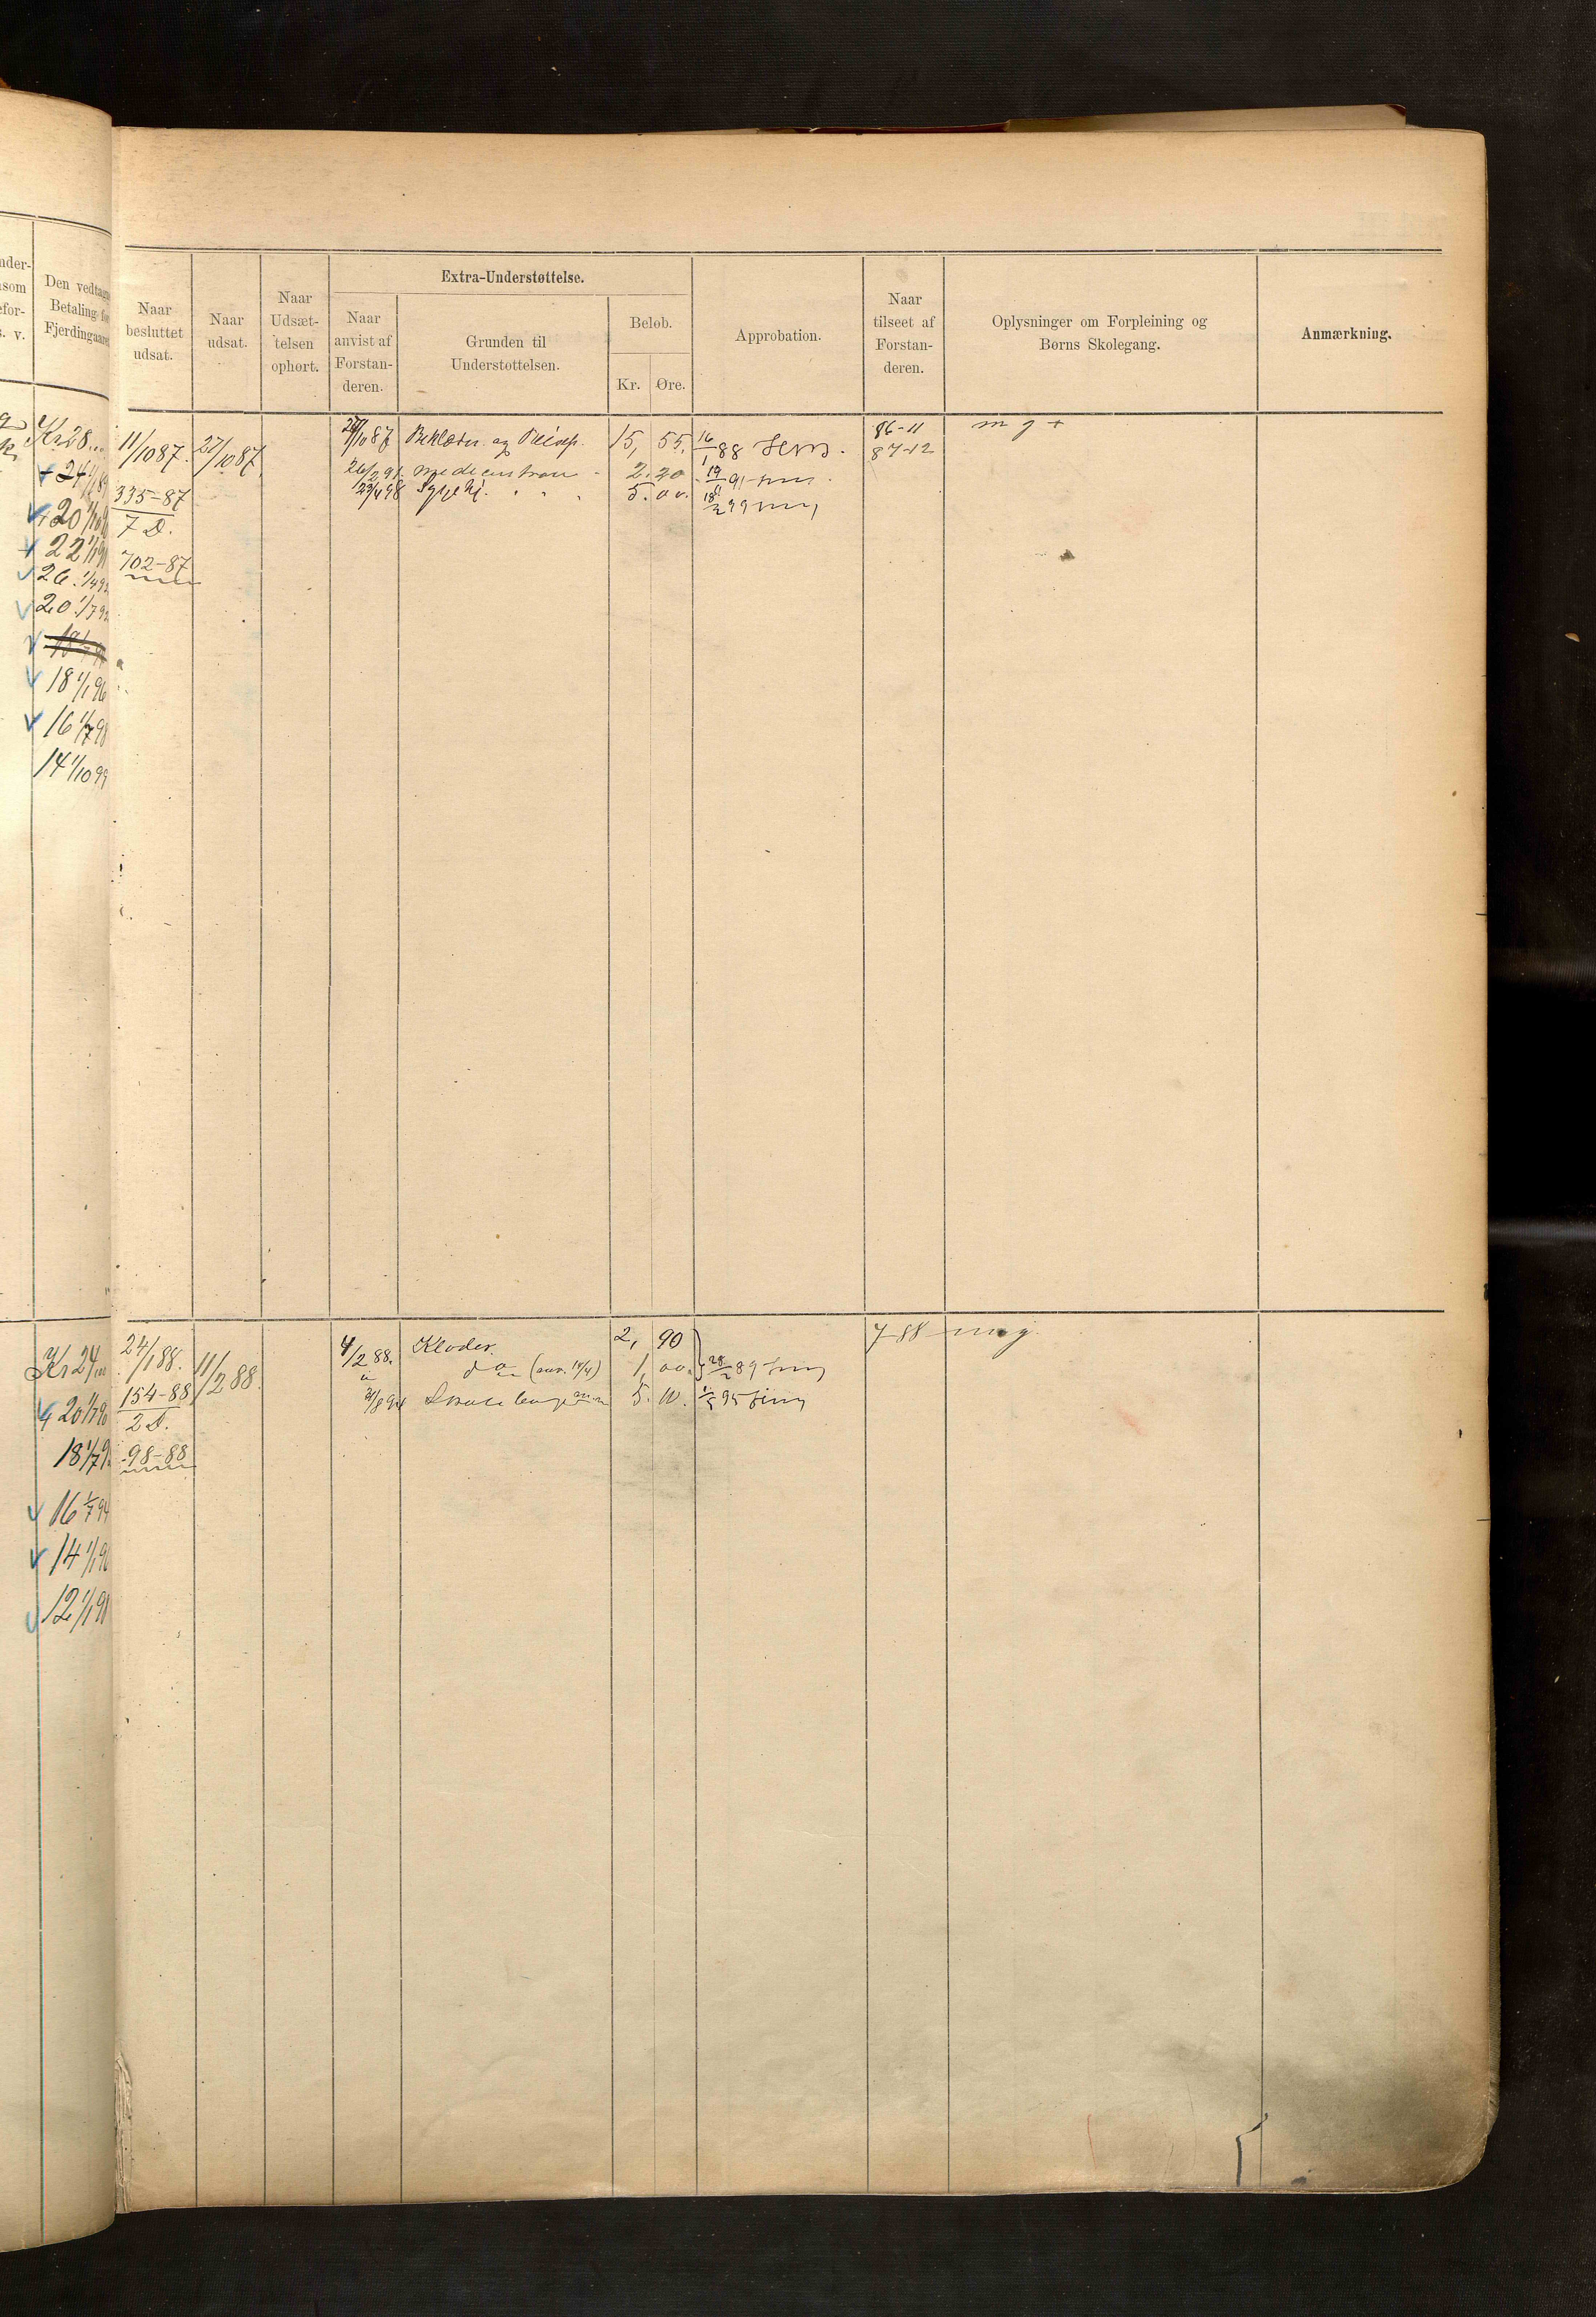 nder-
som
efor-
s. v.
Den vedtagne
Betaling for
Fjerdingaaret
Kr 28
24
20
22
26 1/4 92
20 1/7 9
18 1/1 96
16 1/7 98
14 1/10 99
Kr 24
20 1/7 90
18 1/7 9
16 1/7 94
14 1/1 96
12 1/1 98
Naar
besluttet
udsat.
Naar
udsat.
Naar
Udsæt-
telsen
ophørt.
Extra-Understøttelse.
Naar
anvist af
Forstan-
deren.
Grunden til
Understøttelsen.
Beløb.
Kr. Øre.
Approbation.
Naar
tilseet af
Forstan-
deren.
Oplysninger om Forpleining og
Børns Skolegang.
Anmærkning.
11/10 87. 27/10 87. 27/10 87 Beklæder. og 15, 55. 16/1 88 86-11 m g +
87-12
335-87
7 D.
702-87
26/2 91. 2.20 19/ 91
23/4 98 5.00. 18/2 99
24/1 88. 11/2 88. 4/2 88. Klæder. 2, 90 7-88 m g.
154-88
2 D.
98-88
do 1, 00. 28/2 89
31/8 94 5. 00. 95